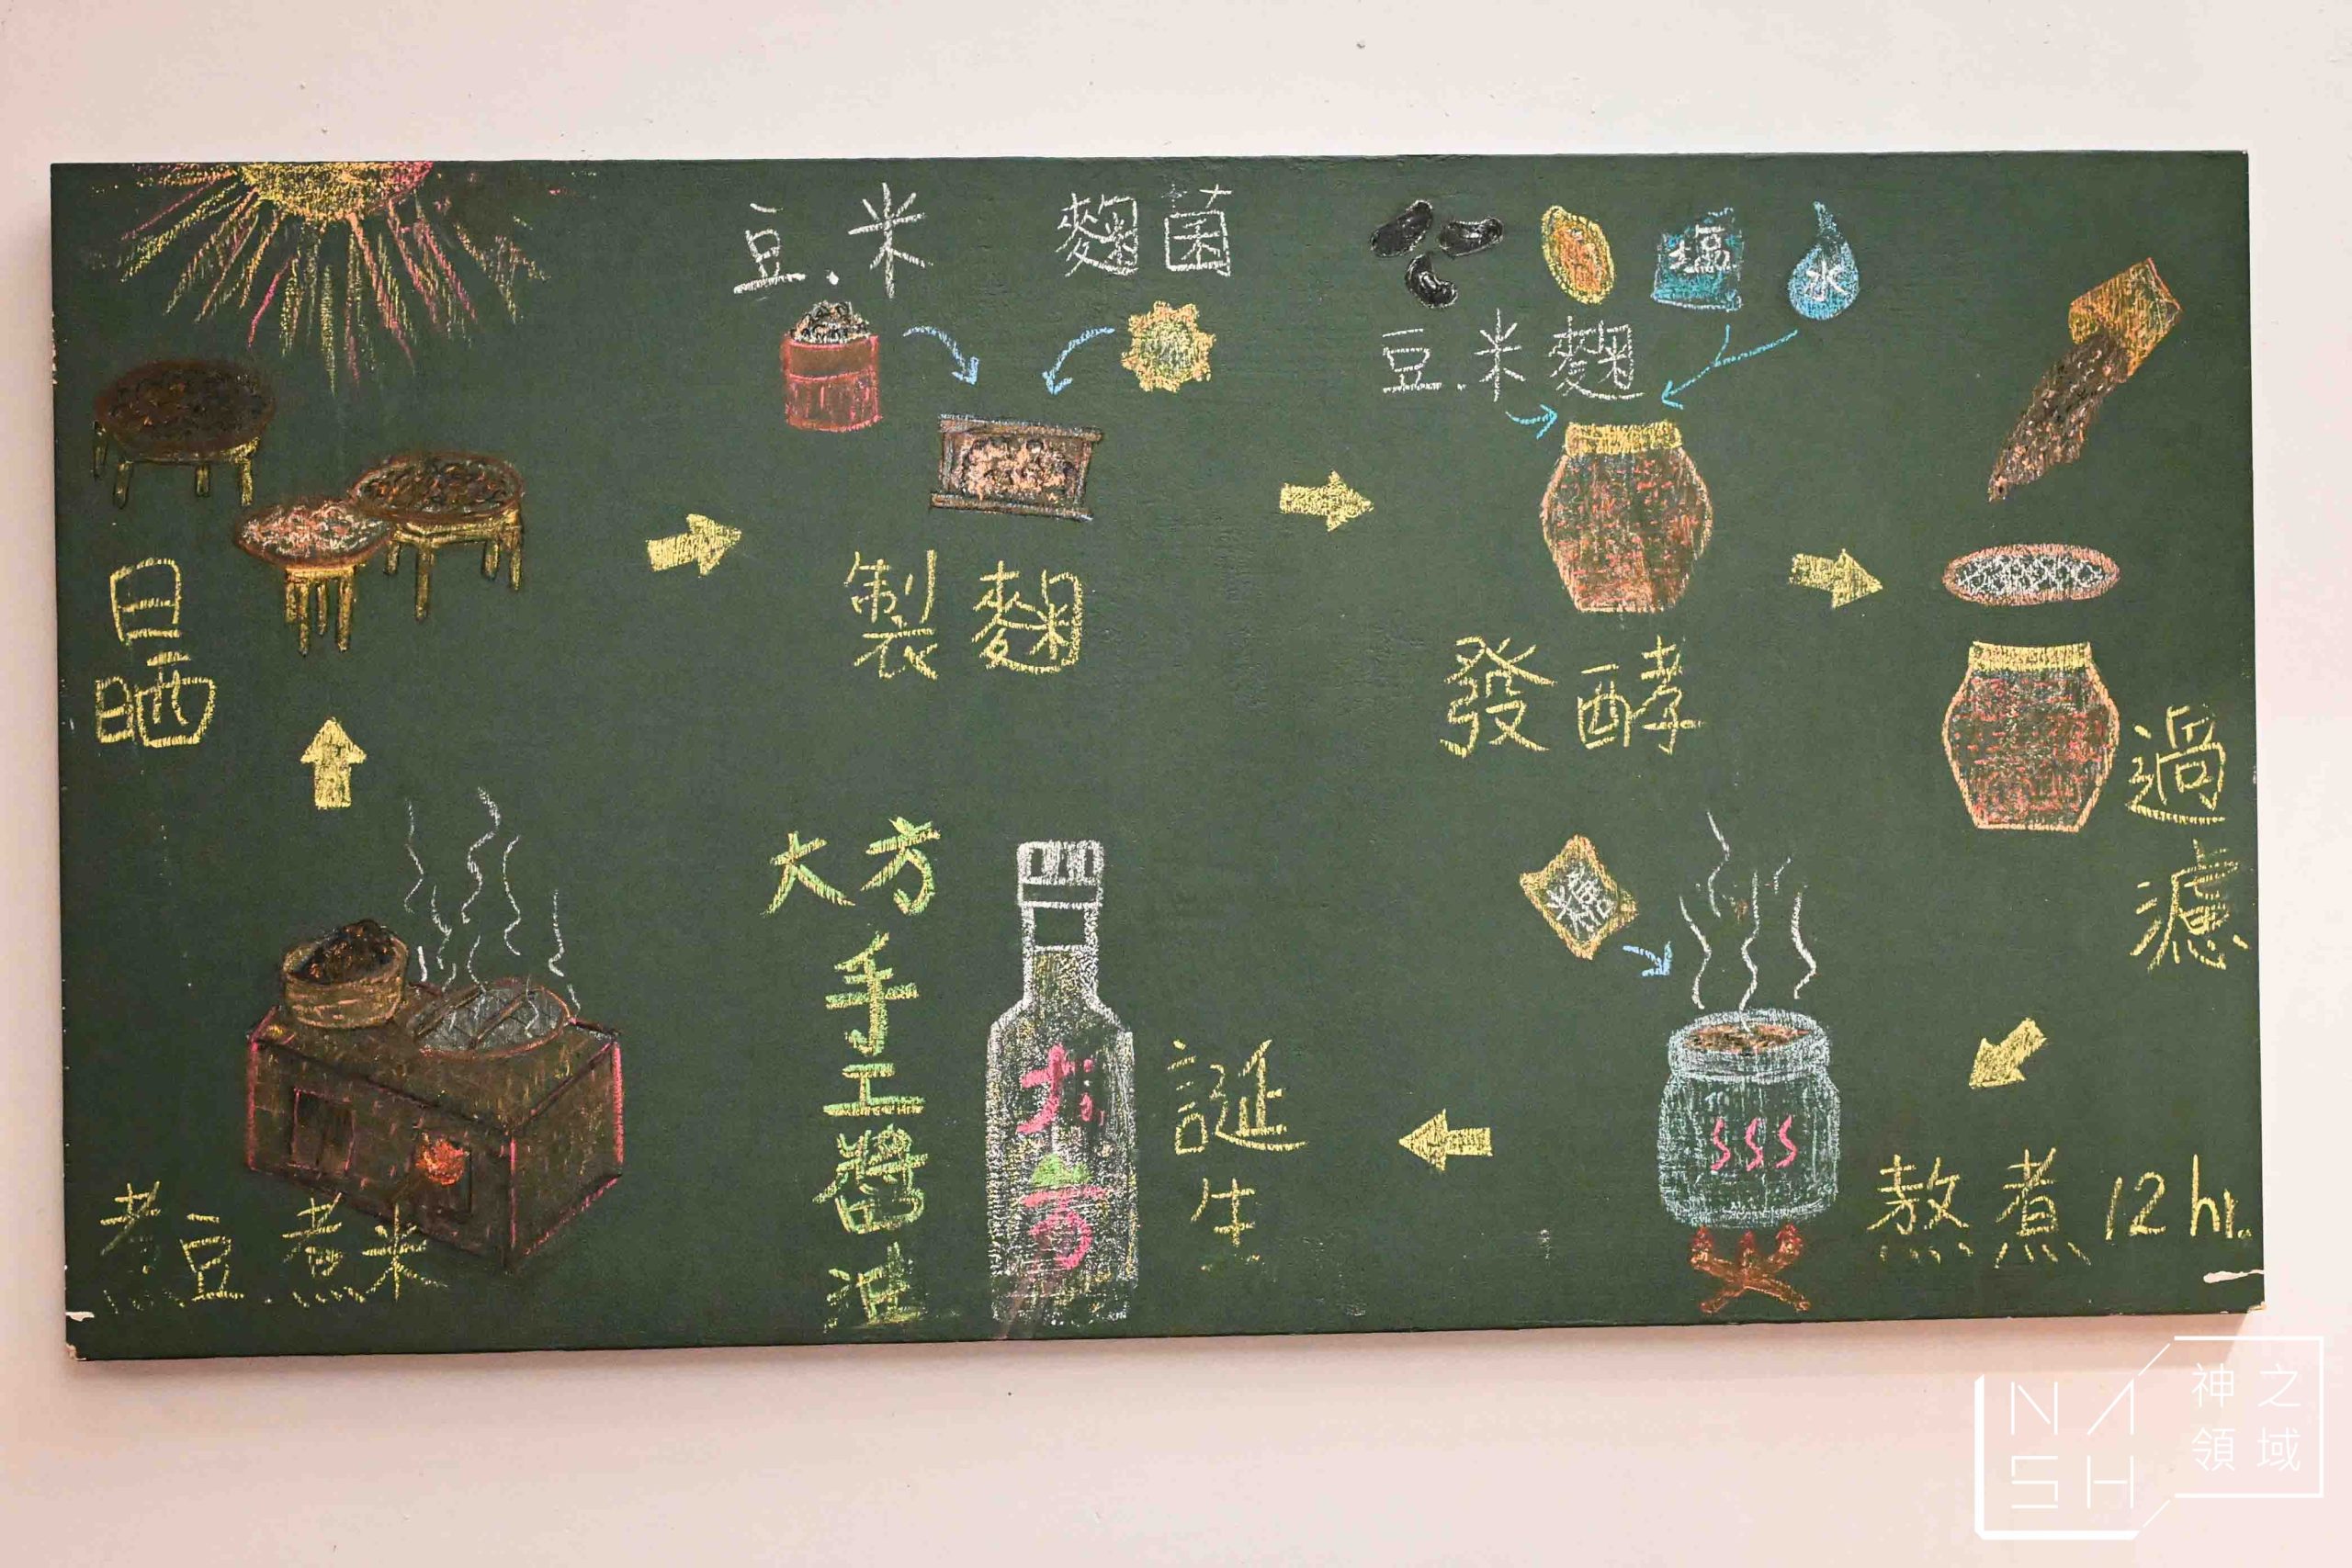 豆.米
麴菌
塩
水
豆.米麴
日晒
製麴
發酵
過濾
糖
大方
手工醬油
誕生
熬煮12hr.
煮豆.煮米
NASH
神之領域